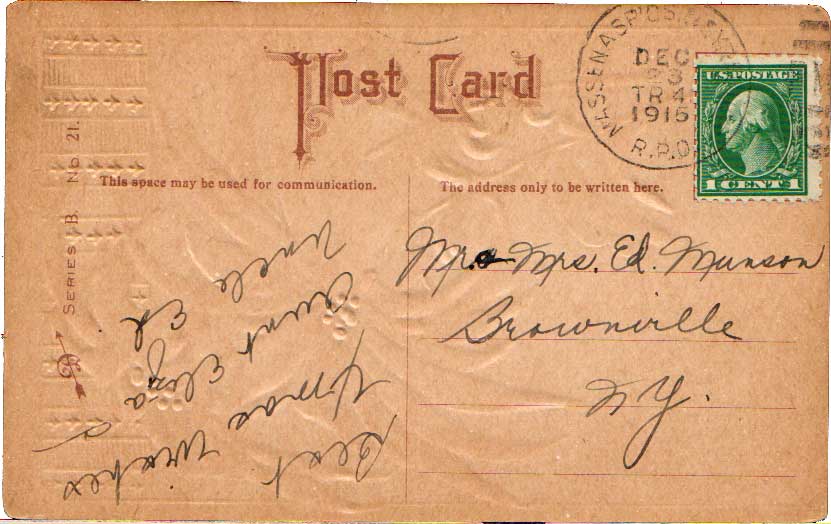 Post Card
This space may be used for communication.
The address only to be written here.
SERIES B. No. 21.
DEC
23
TR 4
1915
R.P.O.
U.S. POSTAGE
1 CENT 1
Mr & Mrs. Ed. Munson
Brownville
N.Y.
Best
Xmas Wishes
Aunt Eliza
Uncle Ed